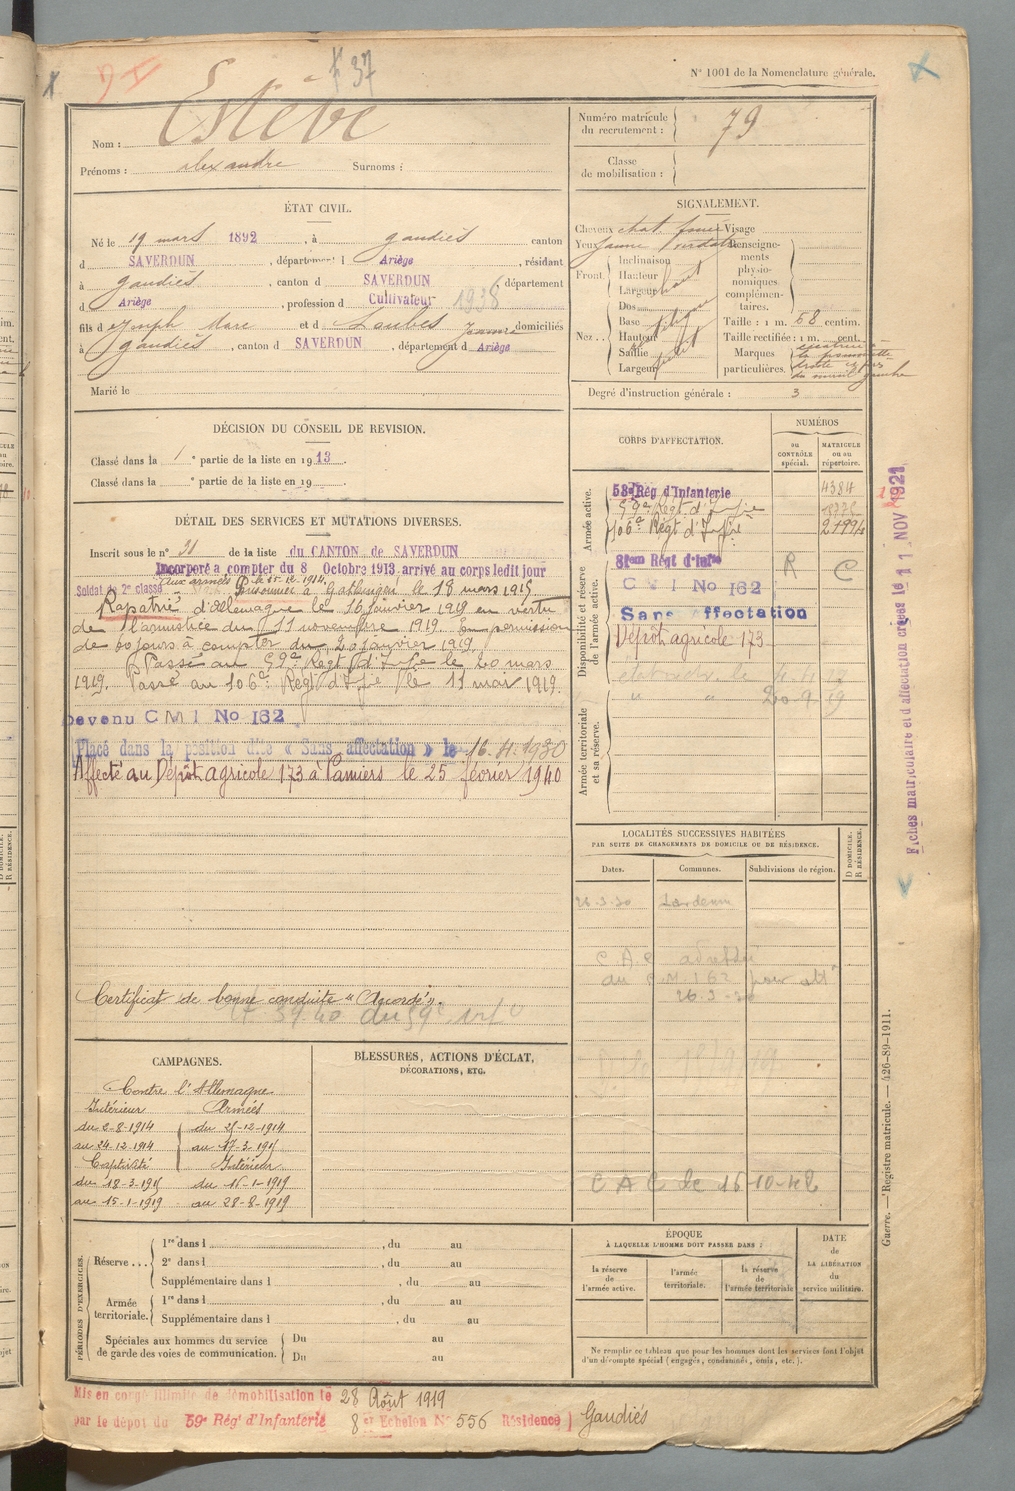 37
N° 1001 de la Nomenclature générale.
Nom : Estèbe
Prénoms : alexandre Surnoms :
Numéro matricule du recrutement : 79
Classe de mobilisation :
ÉTAT CIVIL.
Né le 19 mars 1892, à gaudiés canton
d SAVERDUN, département d Ariège, résidant
à gaudiés, canton d SAVERDUN, département
d Ariège, profession d Cultivateur 1938
fils d Joseph Marc et d Loubes Jeanne domiciliés
à gaudiés, canton d SAVERDUN, département d Ariège
Marié le
SIGNALEMENT.
Cheveux chat. foncé
Yeux jaune verdatre
Front. Inclinaison
Hauteur
Largeur haut
Nez... Dos
Base
Hauteur
Saillie petit
Largeur
Visage
Renseignements physionomiques complémentaires.
Taille : 1 m. 58 centim.
Taille rectifiée : 1 m. cent.
Marques particulières.
droite
gauche
Degré d'instruction générale : 3
DÉCISION DU CONSEIL DE REVISION.
Classé dans la 1 e partie de la liste en 1913.
Classé dans la e partie de la liste en 19 .
DÉTAIL DES SERVICES ET MUTATIONS DIVERSES.
Inscrit sous le n° 31 de la liste du CANTON de SAVERDUN
Incorporé à compter du 8 Octobre 1913 arrivé au corps ledit jour
Soldat de 2e classe aux armées
Prisonnier à le 18 mars 1915
Rapatrié d'allemagne le 16 janvier 1919 en vertu
de l'armistice du 11 novembre 1919. En permission
de 60 jours à compter du 20 janvier 1919.
Passé au 59e Regt d'Infie le 20 mars
1919. Passé au 106e Regt d'Infie le 11 mai 1919.
Devenu C M I No 162
Placé dans la position dite « Sans affectation » le 16.4.1930
Affecté au Dépôt agricole 173 à Pamiers le 25 février 1940
Certificat de bonne conduite "Accordé".
CORPS D'AFFECTATION.
NUMÉROS
au CONTRÔLE spécial.
MATRICULE ou au répertoire.
Armée active.
53e Rég d'Infanterie 4384
59e Régt d'Infie
106e Régt d'Infie
Disponibilité et réserve de l'armée active.
81em Régt d'Infie R C
C M I No 162
Sans affectation
Dépôt agricole 173
Armée territoriale et sa réserve.
Fiches matriculaire et d'affectation créées le 11 NOV 1921
LOCALITÉS SUCCESSIVES HABITÉES
PAR SUITE DE CHANGEMENTS DE DOMICILE OU DE RÉSIDENCE.
Dates. Communes. Subdivisions de région. D DOMICILE. R RÉSIDENCE.
C A C
au C.M. 162 pour
C A C le 16-10-42
CAMPAGNES.
Contre l'Allemagne
Intérieur Armées
du 2-8-1914 du 25-12-1914
au 24-12-1914 au 17-3-1915
Captivité Intérieur
du 18-3-1915 du 16-1-1919
au 15-1-1919 au 28-8-1919
BLESSURES, ACTIONS D'ÉCLAT,
DÉCORATIONS, ETC.
PÉRIODES D'EXERCICES.
Réserve...
1re dans l , du au
2e dans l , du au
Supplémentaire dans l , du au
Armée territoriale.
1re dans l , du au
Supplémentaire dans l , du au
Spéciales aux hommes du service de garde des voies de communication.
Du au
Du au
ÉPOQUE
À LAQUELLE L'HOMME DOIT PASSER DANS :
la réserve de l'armée active.
l'armée territoriale.
la réserve de l'armée territoriale
DATE de LA LIBÉRATION du service militaire.
Ne remplir ce tableau que pour les hommes dont les services font l'objet
d'un décompte spécial (engagés, condamnés, omis, etc.).
Guerre. — Registre matricule. — 426-89-1911.
Mis en congé illimité de démobilisation le 28 Août 1919
par le dépôt du 59e Rég' d'Infanterie 8e Echelon N° 556 Résidence Gaudiés